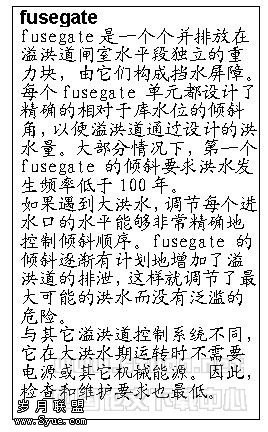 fusegate
fusegate是一个个并排放在
溢洪道闸室水平段独立的重
力块，由它们构成挡水屏障。
每个fusegate 单元都设计了
精确的相对于库水位的倾斜
角，以使溢洪道通过设计的洪
水量。大部分情况下，第一个
fusegate 的倾斜要求洪水发
生频率低于100年。
如果遇到大洪水，调节每个进
水口的水平能够非常精确地
控制倾斜顺序。fusegate 的
倾斜逐渐有计划地增加了溢
洪道的排泄，这样就调节了最
大可能的洪水而没有泛滥的
危险。
与其它溢洪道控制系统不同，
它在大洪水期运转时不需要
电源或其它机械能源。因此，
检查和维护要求也最低。
岁月联盟
www.Syue.com